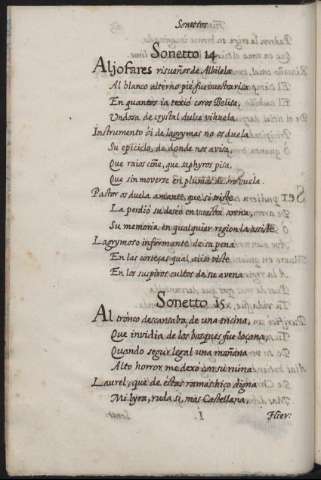 Sonetos
Sonetto 14
Aljofares risueños de Albilela
Al blanco alterno pie fue vuestra risa
En quantos ia texió coros Belisa,
Undosa de crystal dulce vihuela.
Instrumento oi de lagrymas no os duela
Su epiciclo, de donde nos avisa,
Que raios ciñe, que zephyros pisa,
Que sin moverse en plumas de oro vuela.
Pastor os duela amante, que si triste
La perdió su deseo en vuestra arena,
Su memoria en qualquier region la assiste
Lagrymoso informante de su pena
En las cortezas que el aliso viste
En los suspiros cultos de su avena
Sonetto 15
Al tronco descansaba de una encina,
Que invidia de los bosques fue loçana,
Quando segur legal una mañana
Alto horror me dexo con su ruina
Laurel, que de sus ramas hizo digna
Mi lyra, ruda si, mas Castellana,
Hier: